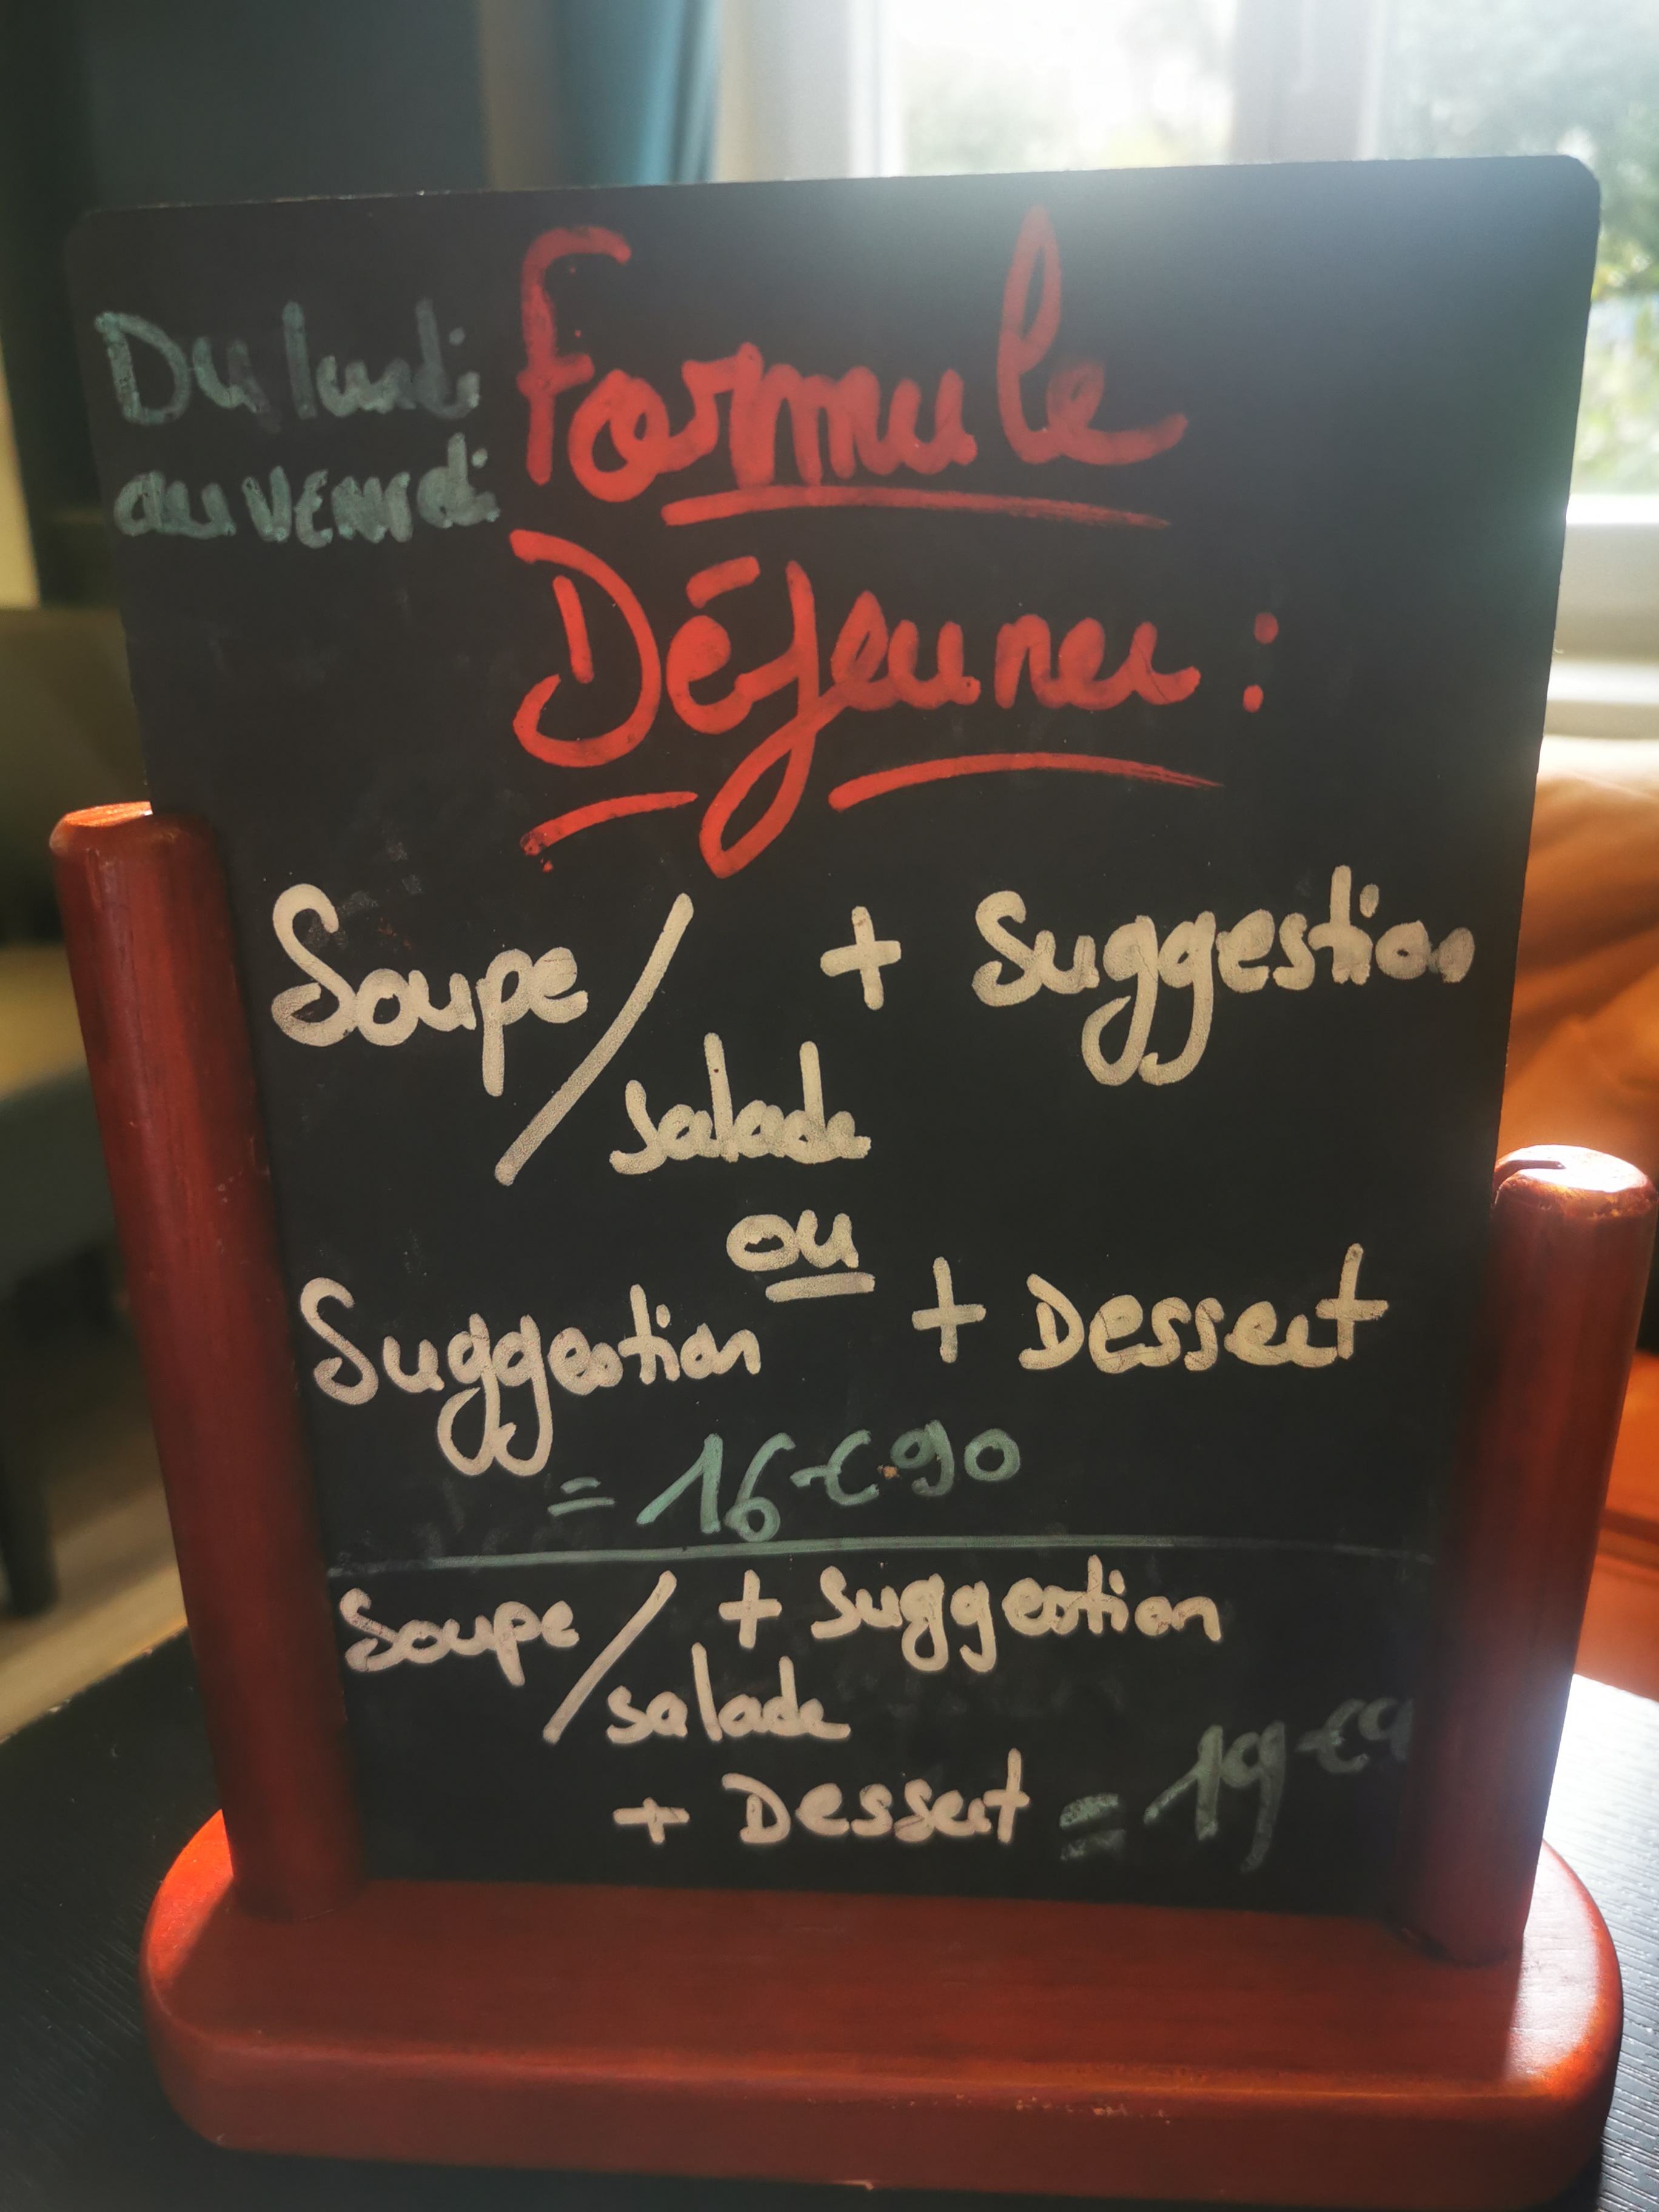 Du lundi
au vendredi
Formule
Déjeuner :
Soupe / + Suggestion
salade
ou
Suggestion + Dessert
= 16€90
Soupe / + Suggestion
salade
+ Dessert = 19€9